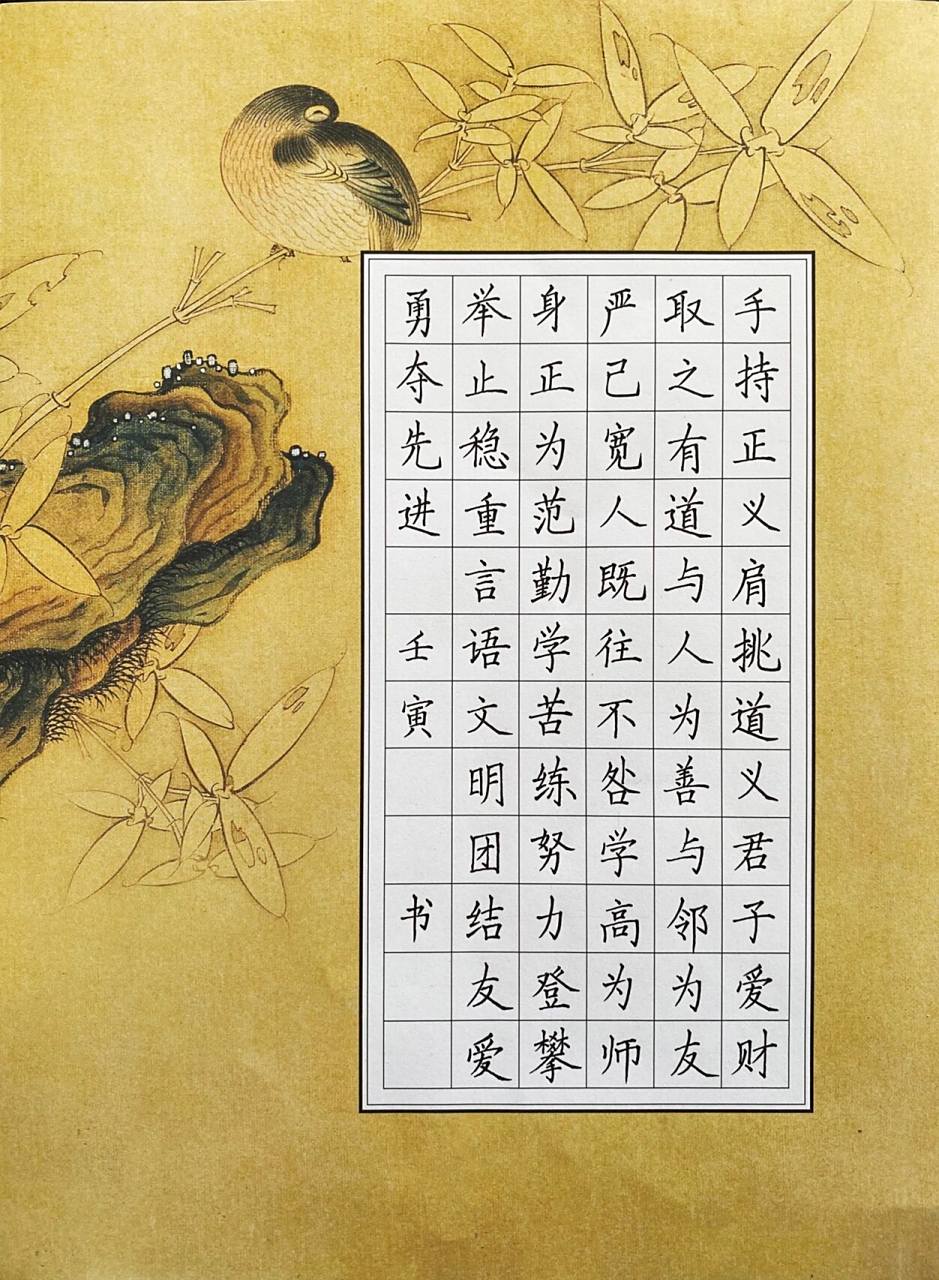 手持正义肩挑道义君子爱财
取之有道与人为善与邻为友
严己宽人既往不咎学高为师
身正为范勤学苦练努力登攀
举止稳重言语文明团结友爱
勇夺先进 壬寅 书